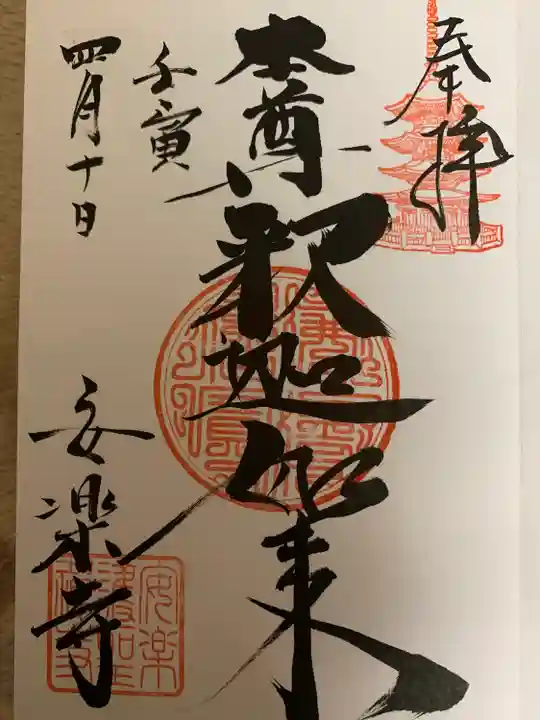 奉拝
本尊釈迦如来
壬寅
四月十日
安楽寺
安楽